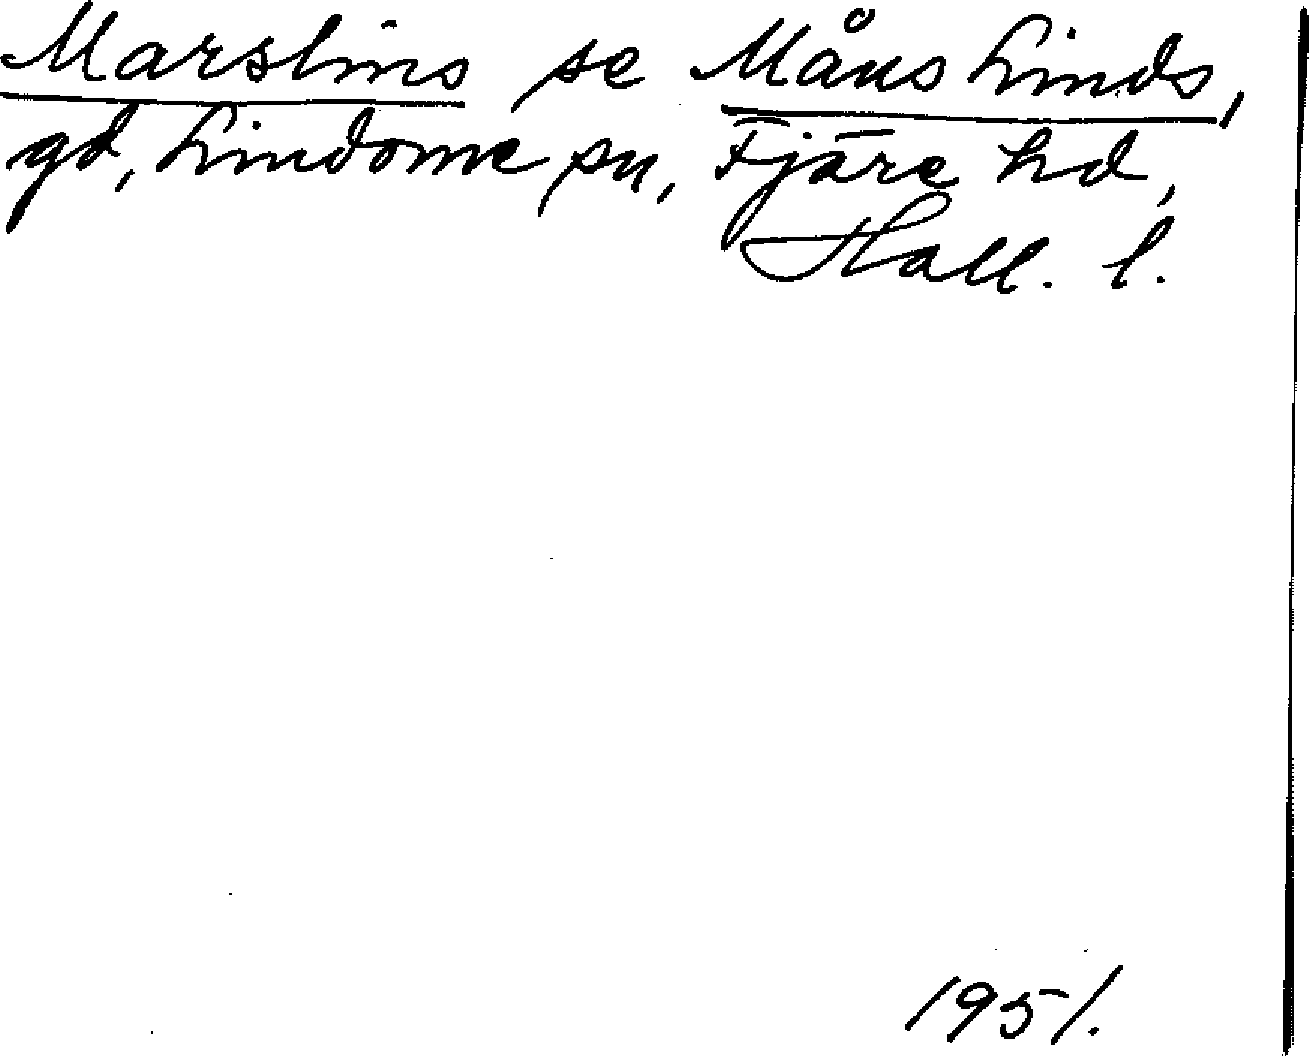 Marslins se Måns Linds,
gd, Lindome sn, Fjäre hd,
Hall. l.
1951.